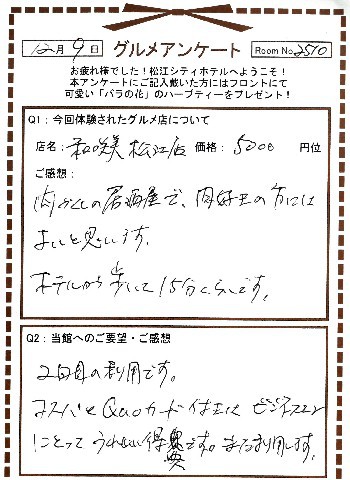 12月9日 グルメアンケート Room No.2510
お疲れ様でした！松江シティホテルへようこそ！
本アンケートにご記入戴いた方にはフロントにて
可愛い「バラの花」のハーブティーをプレゼント！
Q1：今回体験されたグルメ店について
店名：和咲美 松江店 価格：5000 円位
ご感想：
肉づくしの居酒屋で、肉好きの方には
よいと思います。
ホテルから歩いて15分くらいです。
Q2：当館へのご要望・ご感想
2回目の利用です。
コスパとQuoカード付きは ビジネスマン
にとって うれしい得典です。また利用します。